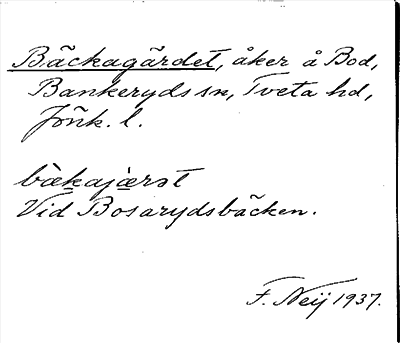 Bäckagärdet, åker å Bod,
Bankeryds sn, Tveta hd,
Jönk. l.
bæ̀kajæ̀rət
Vid Bosarydsbäcken.
F. Neij 1937.